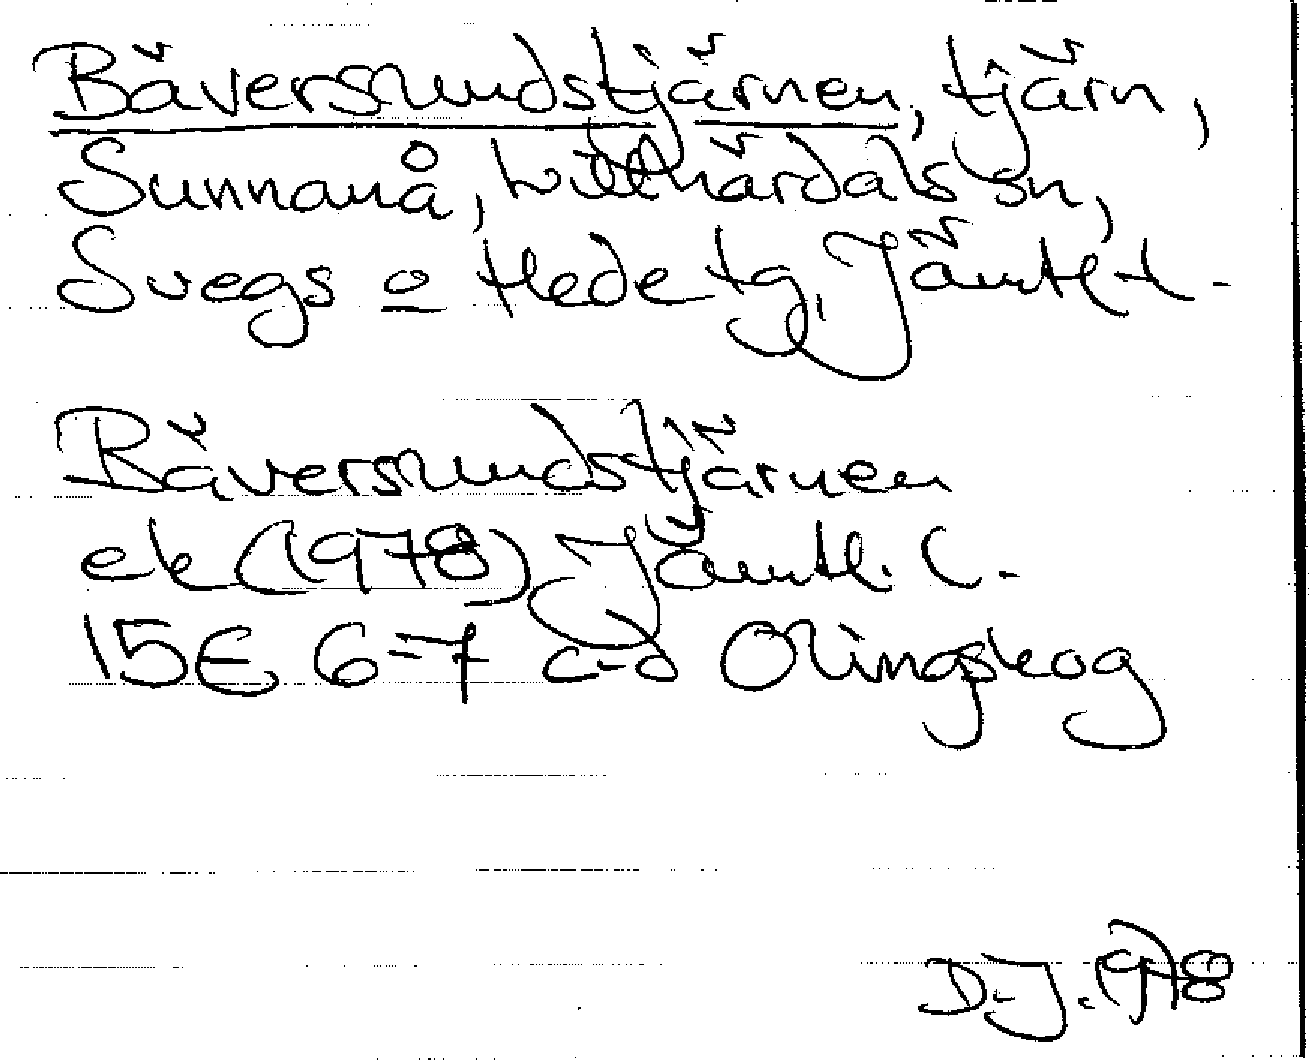 Bäversundstjärnen, tjärn,
Sunnanå, Lillhärdals sn,
Svegs o Hede tg, Jämtl. l.
Bäversundstjärnen
ek (1978) Jämtl. l.
15E 6-7 c-d Olingskog
D.J. 1978